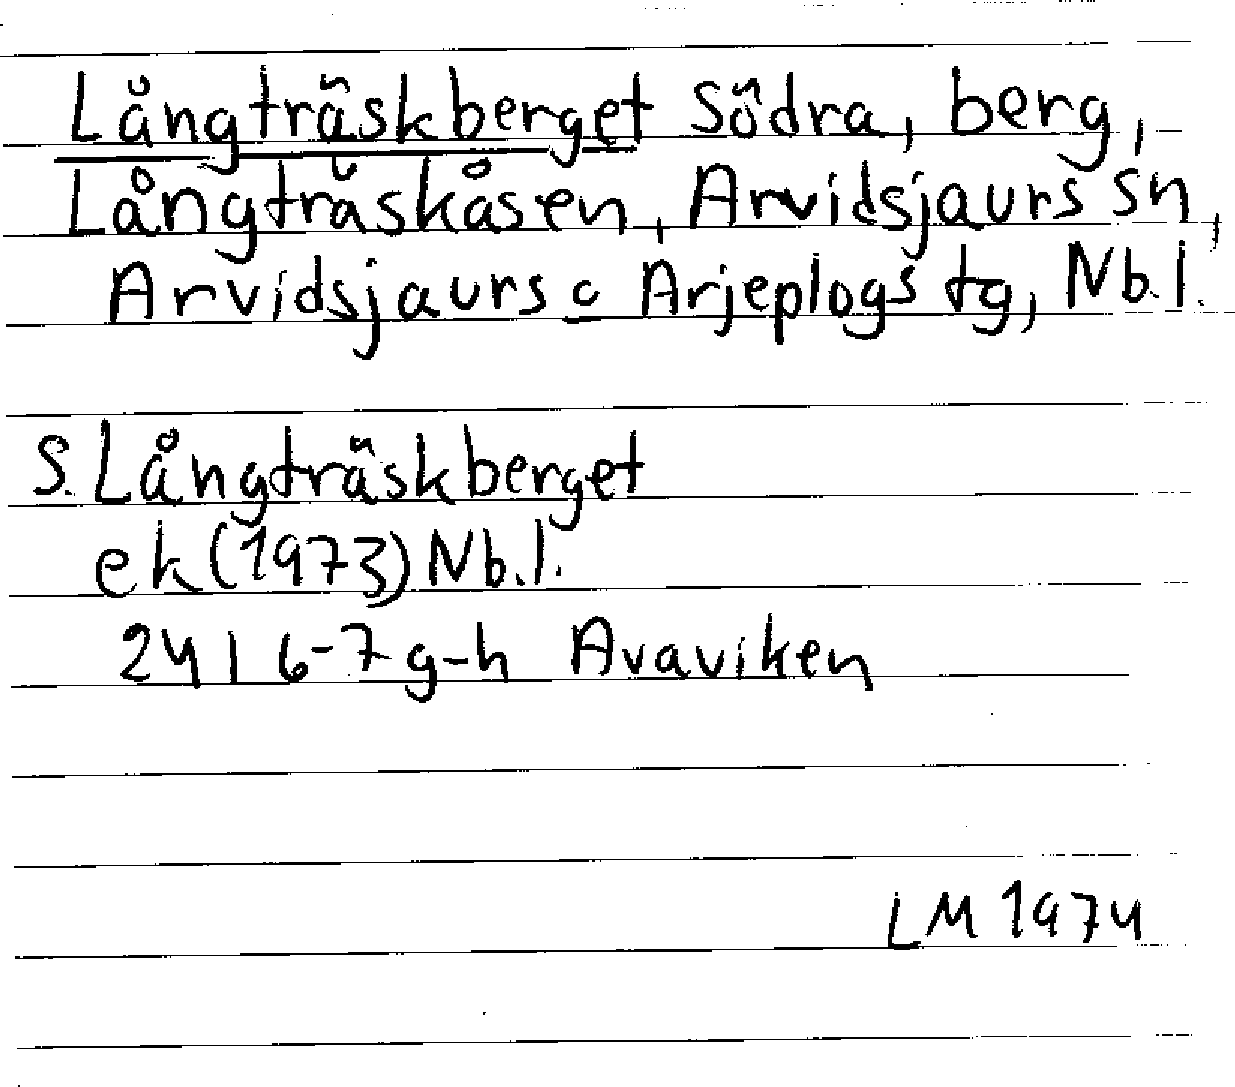 Långträskberget Södra, berg,
Långträskåsen, Arvidsjaurs sn,
Arvidsjaurs o Arjeplogs tg, Nb.l.
S. Långträskberget
ek (1973) Nb.l.
24 I 6-7 g-h Avaviken
LM 1974